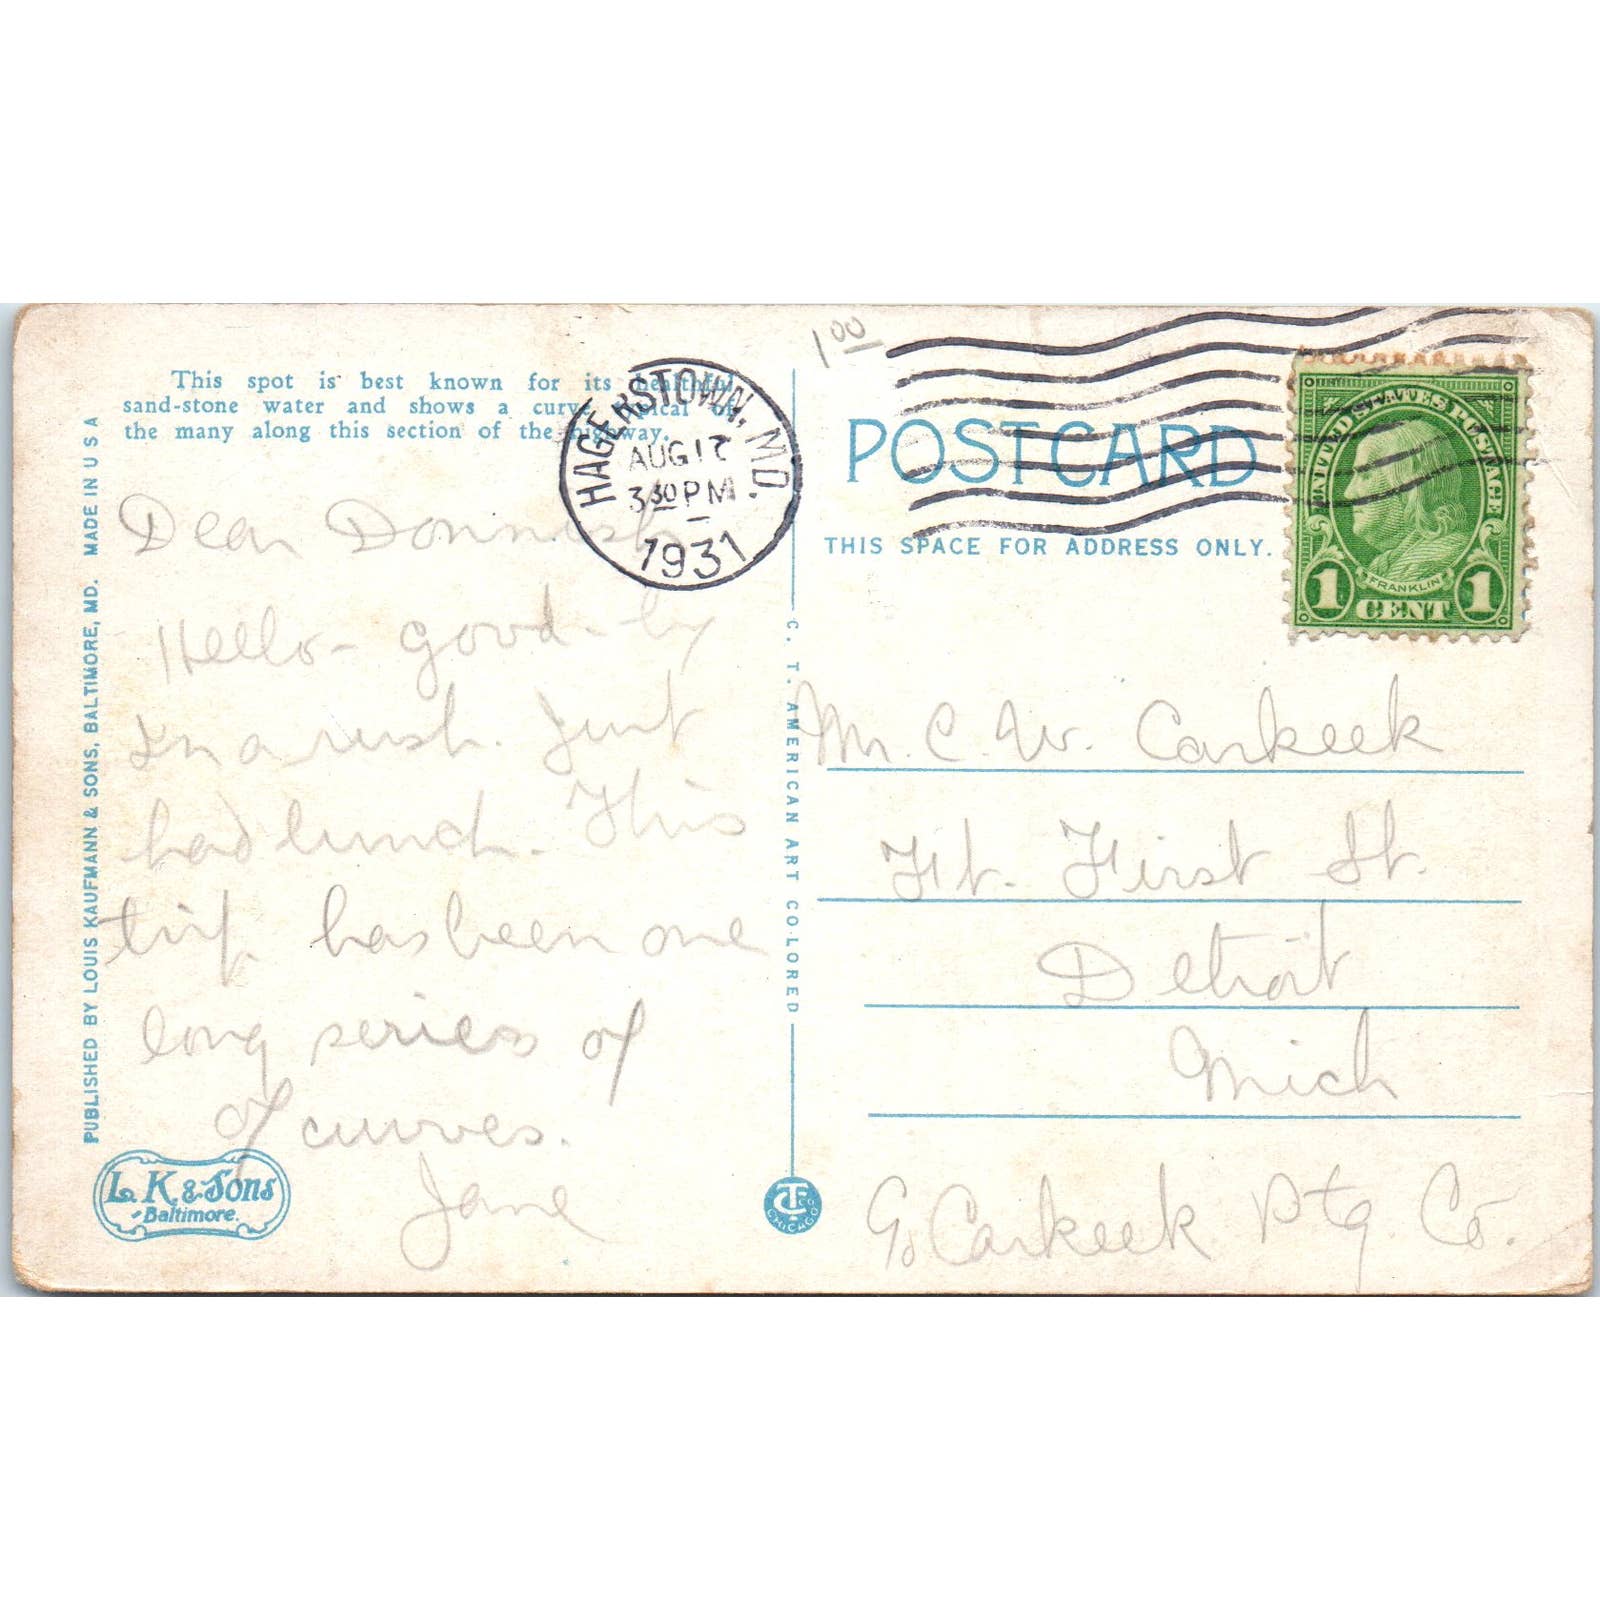 This spot is best known for its healthful
sand-stone water and shows a curve typical of
the many along this section of the highway.
Dear
Hello - good-by
In a rush. Just
had lunch. This
trip has been one
long series of
of curves.
Jane
PUBLISHED BY LOUIS KAUFMANN & SONS, BALTIMORE, MD. MADE IN U S A
L. K. & Sons
Baltimore.
HAGERSTOWN, MD.
AUG 17
3 30 PM
1931
C. T. AMERICAN ART COLORED
C T CO
CHICAGO
1 00
POST CARD
THIS SPACE FOR ADDRESS ONLY.
UNITED STATES POSTAGE
FRANKLIN
1 CENT 1
Mr. C. W. Carkeek
Ft. First St.
Detroit
Mich
c/o Carkeek Ptg. Co.